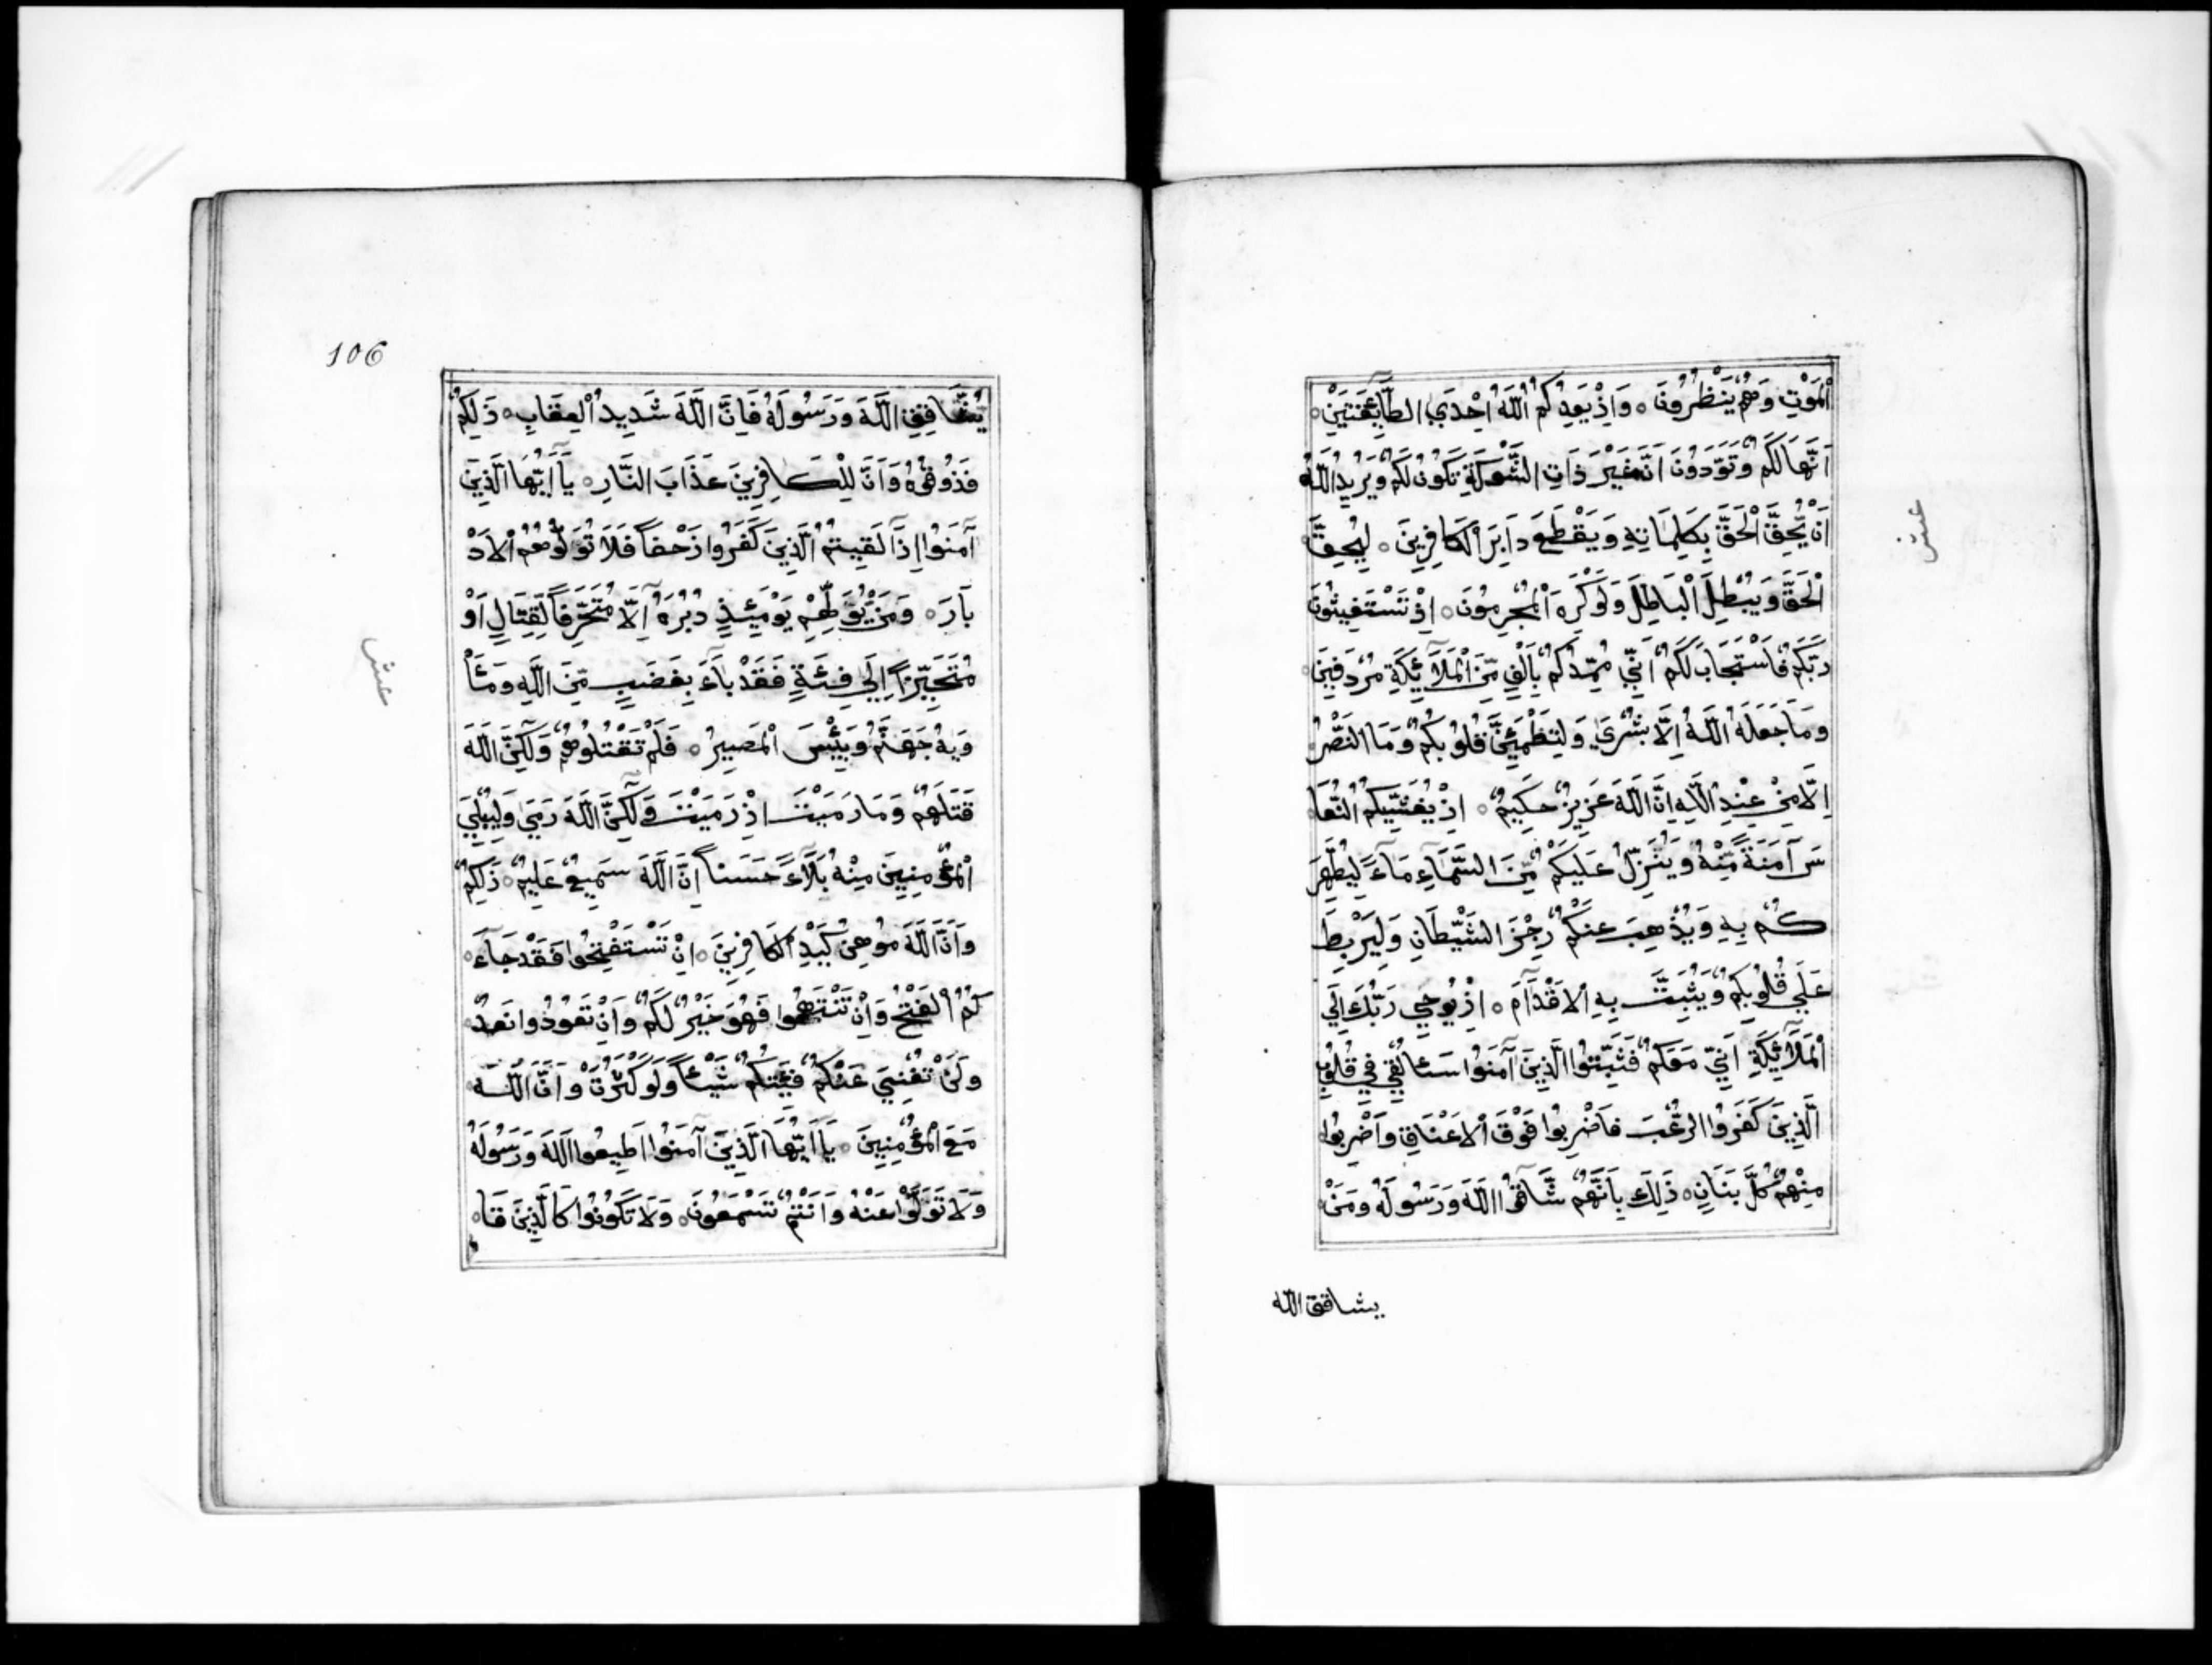 اْلمَوْتِ وَهُمْ يَنْظُرُونَ ۝ وَاِذْ يَعِدُكُمُ اللّٰهُ اِحْدَي الطَّآئِفَتَيْنِ
اَنَّهَا لَكُمْ وَتَوَدُّونَ اَنَّ غَيْرَ ذَاتِ الشَّوْكَةِ تَكُونُ لَكُمْ وَيُرِيدُ اللّٰهُ
اَنْ يُّحِقَّ الْحَقَّ بِكَلِمَاتِهِ وَيَقْطَعَ دَابِرَ اْلكَافِرِينَ ۝ لِيُحِقَّ
الْحَقَّ وَيُبْطِلَ الْبَاطِلَ وَلَوْ كَرِهَ اْلمُجْرِمُونَ ۝ اِذْ تَسْتَغِيثُونَ
رَبَّكُمْ فَاسْتَجَابَ لَكُمْ اَنِّي مُمِدُّكُمْ بِاَلْفٍ مِّنَ اْلمَلَآئِكَةِ مُرْدَفِينَ
وَمَا جَعَلَهُ اللّٰهُ اِلَّا بُشْرَي وَلِتَطْمَئِنَّ قُلُوبُكُمْ وَمَا النَّصْرُ
اِلَّا مِنْ عِنْدِ اللّٰهِ اِنَّ اللّٰهَ عَزِيزٌ حَكِيمٌ ۝ اِذْ يُغَشِّيكُمُ النُّعَا
سَ آمَنَةً مِّنْهُ وَيُنَزِّلُ عَلَيكُمْ مِّنَ السَّمَآءِ مَآءً لِيُطَهِّرَ
كُمْ بِهِ وَيُذْهِبَ عَنكُمْ رِجْزَ الشَّيْطَانِ وَلِيَرْبِطَ
عَلَي قُلُوبِكُمْ وَيُثَبِّتَ بِهِ اْلاَقْدَآمَ ۝ اِذْ يُوحِي رَبُّكَ اِلَي
اْلمَلَآئِكَةِ اَنِّي مَعَكُمْ فَثَبِّتُوا الَّذِينَ آمَنُوا سَئَا لْقِي فِي قُلُوبِ
الَّذِينَ كَفَرُوا الرُّعْبَ فَاضْرِبُوا فَوْقَ اْلاَعْنَاقِ وَاضْرِبُوا
مِنْهُمْ كُلَّ بَنَانٍ ۝ ذَلِكَ بِاَنَّهُمْ شَآقُّوا اللّٰهَ وَرَسُولَهُ وَمَنْ
يشاقق الله
عشر
106
يُشَاقِقِ اللّٰهَ وَرَسُولَهُ فَاِنَّ اللّٰهَ شَدِيدُ اْلعِقَابِ ۝ ذَلِكُمْ
فَذُوقُوهُ وَاَنَّ لِلْكَافِرِينَ عَذَابَ النَّارِ ۝ يَآ اَيُّهَا الَّذِينَ
آمَنُوا اِذَا لَقِيتُمُ الَّذِينَ كَفَرُوا زَحْفاً فَلَا تُوَلُّوهُمُ اْلاَدْ
بَارَ ۝ وَمَنْ يُّوَلِّهِمْ يَوْمَئِذٍ دُبُرَهُ اِلَّا مُتَحَرِّفاً لِّقِتَالٍ اَوْ
مُتَحَيِّزاً اِلَي فِئَةٍ فَقَدْ بَآءَ بِغَضَبٍ مِّنَ اللّٰهِ وَمَئَا
وَيهُ جَهَنَّمُ وَبِئْسَ اْلمَصِيرُ ۝ فَلَمْ تَقْتُلُوهُمْ وَلَكِنَّ اللّٰهَ
قَتَلَهُمْ وَمَا رَمَيْتَ اِذْ رَمَيْتَ وَلَكِنَّ اللّٰهَ رَمَي وَلِيُبْلِيَ
اْلمُؤْمِنِينَ مِنْهُ بَلَآءً حَسَناً اِنَّ اللّٰهَ سَمِيعٌ عَلِيمٌ ۝ ذَلِكُمْ
وَاَنَّ اللّٰهَ مُوهِنُ كَيْدِ اْلكَافِرِينَ ۝ اِنْ تَسْتَفْتِحُوا فَقَدْ جَآءَ
كُمُ اْلفَتْحُ وَاِنْ تَنْتَهُوا فَهُوَ خَيْرٌ لَكُمْ وَاِنْ تَعُودُوا نَعُدْ
وَلَنْ تُغْنِيَ عَنْكُمْ فِئَتُكُمْ شَيْئاً وَلَوْ كَثُرَتْ وَاَنَّ اللّٰهَ
مَعَ اْلمُؤْمِنِينَ ۝ يَآ اَيُّهَا الَّذِينَ آمَنُوا اَطِيعُوا اللّٰهَ وَرَسُولَهُ
وَلَا تَوَلَّوْا عَنْهُ وَاَنْتُمْ تَسْمَعُونَ ۝ وَلَا تَكُونُوا كَالَّذِينَ قَا
عشر